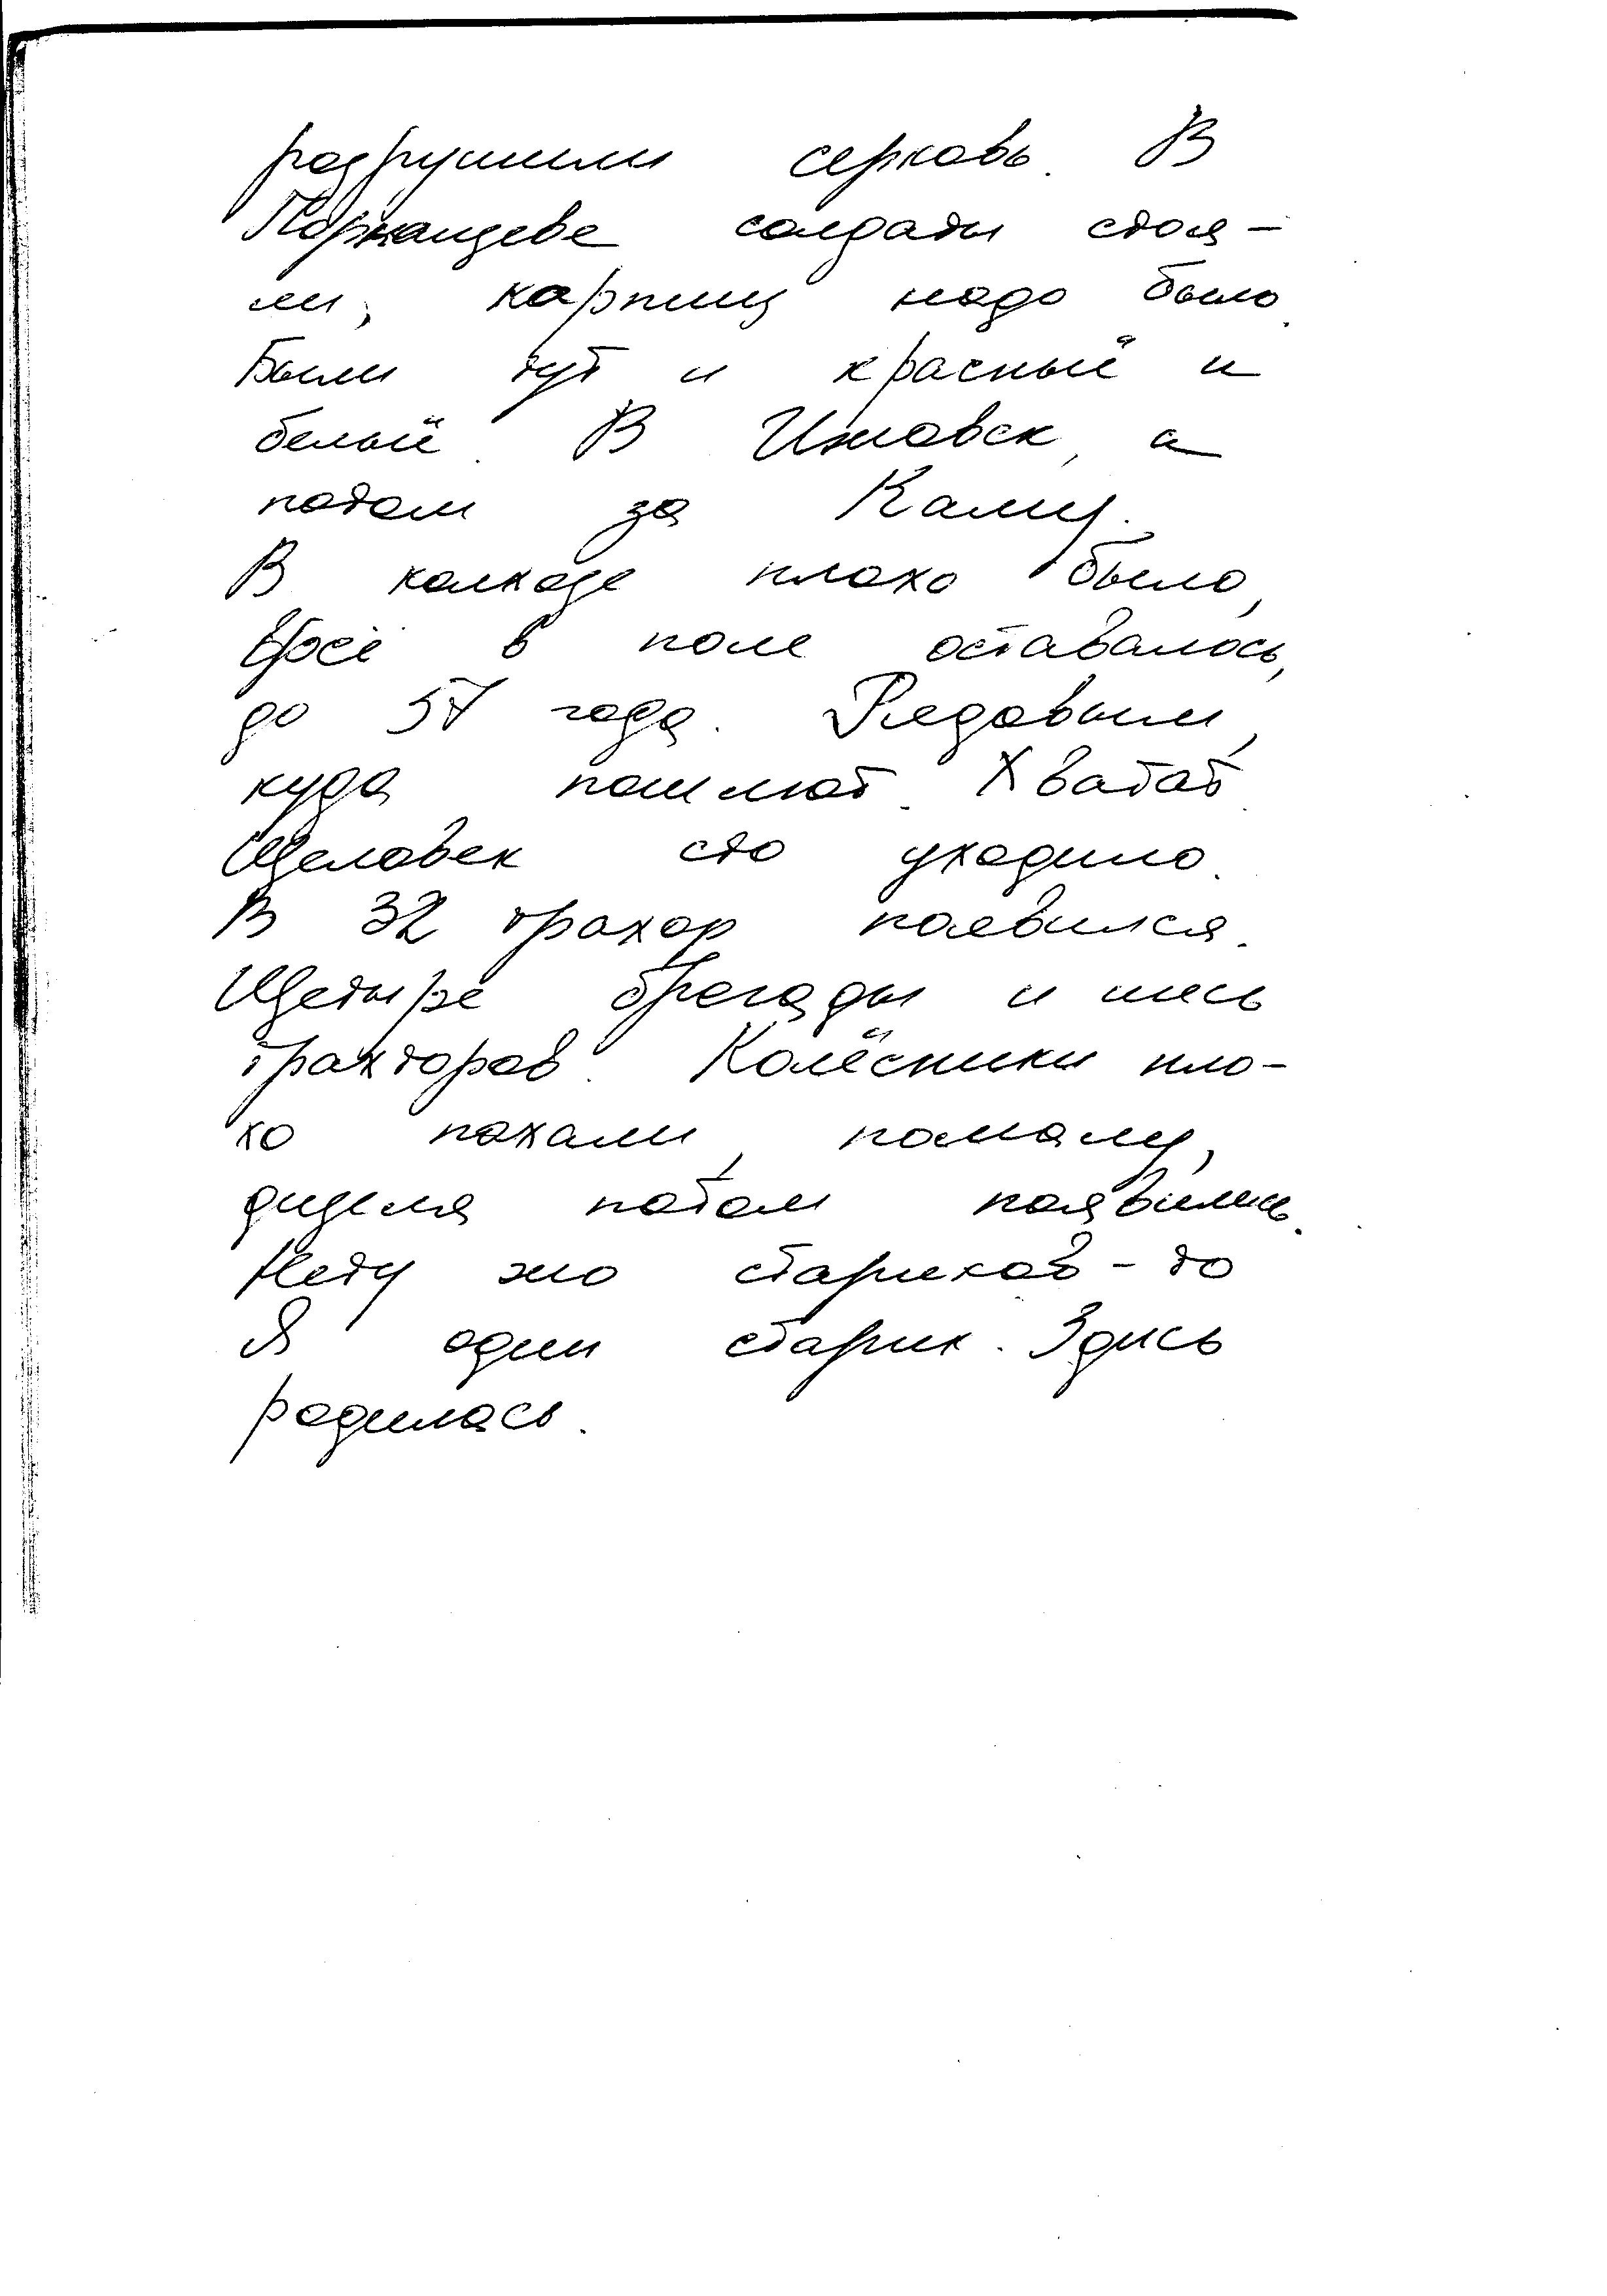 разрушили серковь. В
солдаты стоя-
ли, карпищ надо было.
Были тут и красный и
белый. В Ижовск, а
потом за Каму.
В колхозе плохо было,
всё в поле оставалось,
до 57 года. Рядовым,
куда пошлют. Хватат.
Щеловек сто уходило.
В 32 трахор поевился.
Щетыре брегады и шесь
трахторов. Колёсники пло-
хо пахали, помалу,
дизеля потом появились.
Нету жо стариков-то
Я один старик. Здись
родилась.